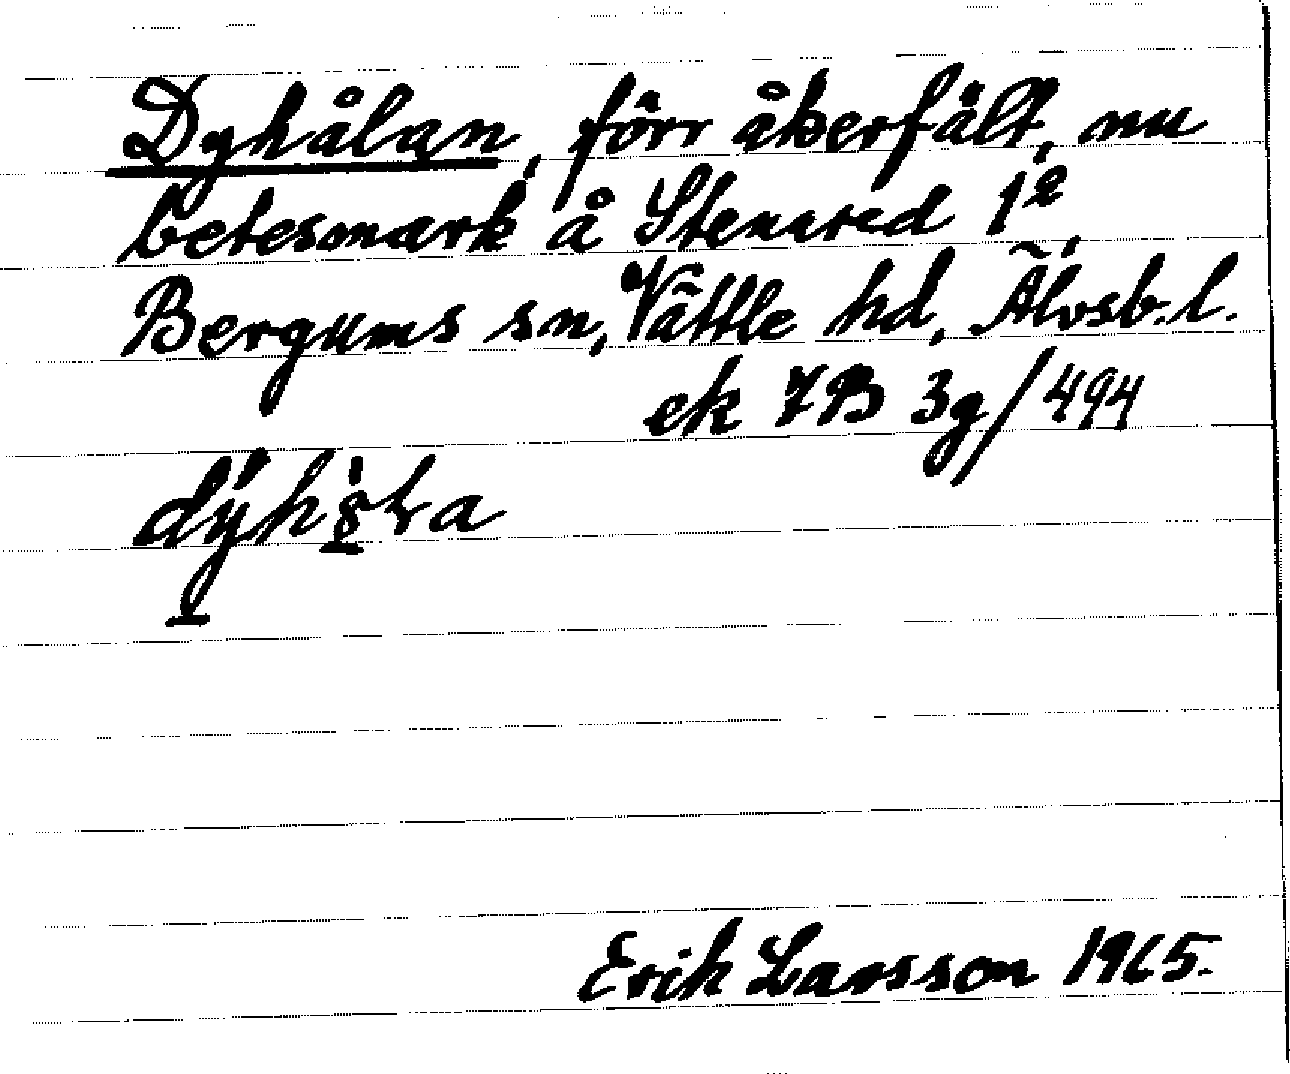 Dyhålan, förr åkerfält, nu
betesmark å Stenared 1²,
Bergums sn, Vättle hd, Älvsb. l.
ek 7B 3g/494
Erik Larsson 1965.